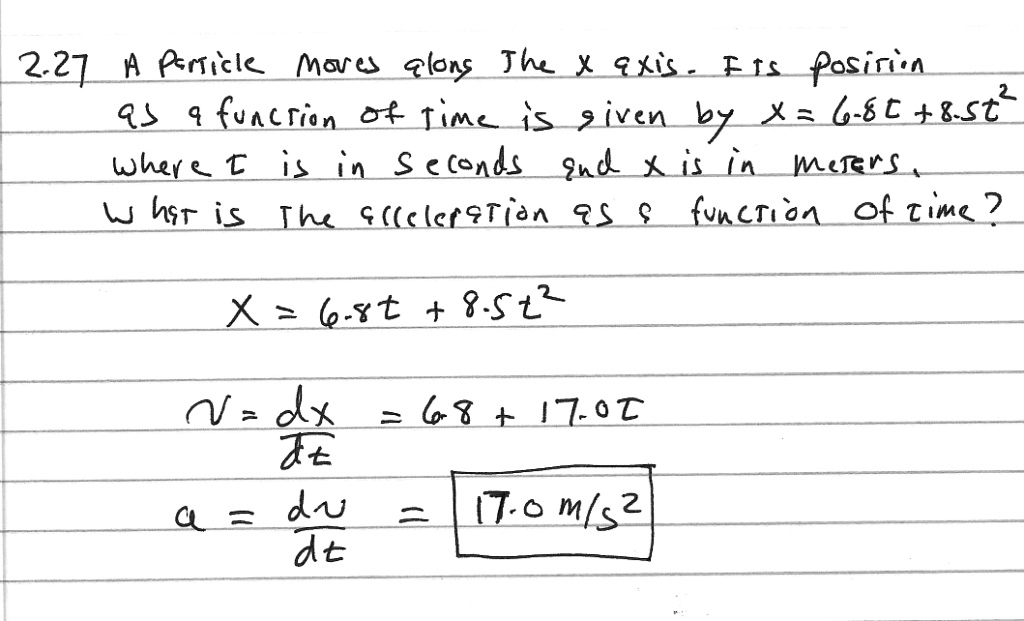 2.27 A Particle moves along The x axis. Its position
as a function of Time is given by x = 6.8t + 8.5t²
where t is in seconds and x is in meters.
What is The acceleration as a function of time?
X = 6.8t + 8.5t²
v = dx/dt = 6.8 + 17.0t
a = dv/dt = 17.0 m/s²